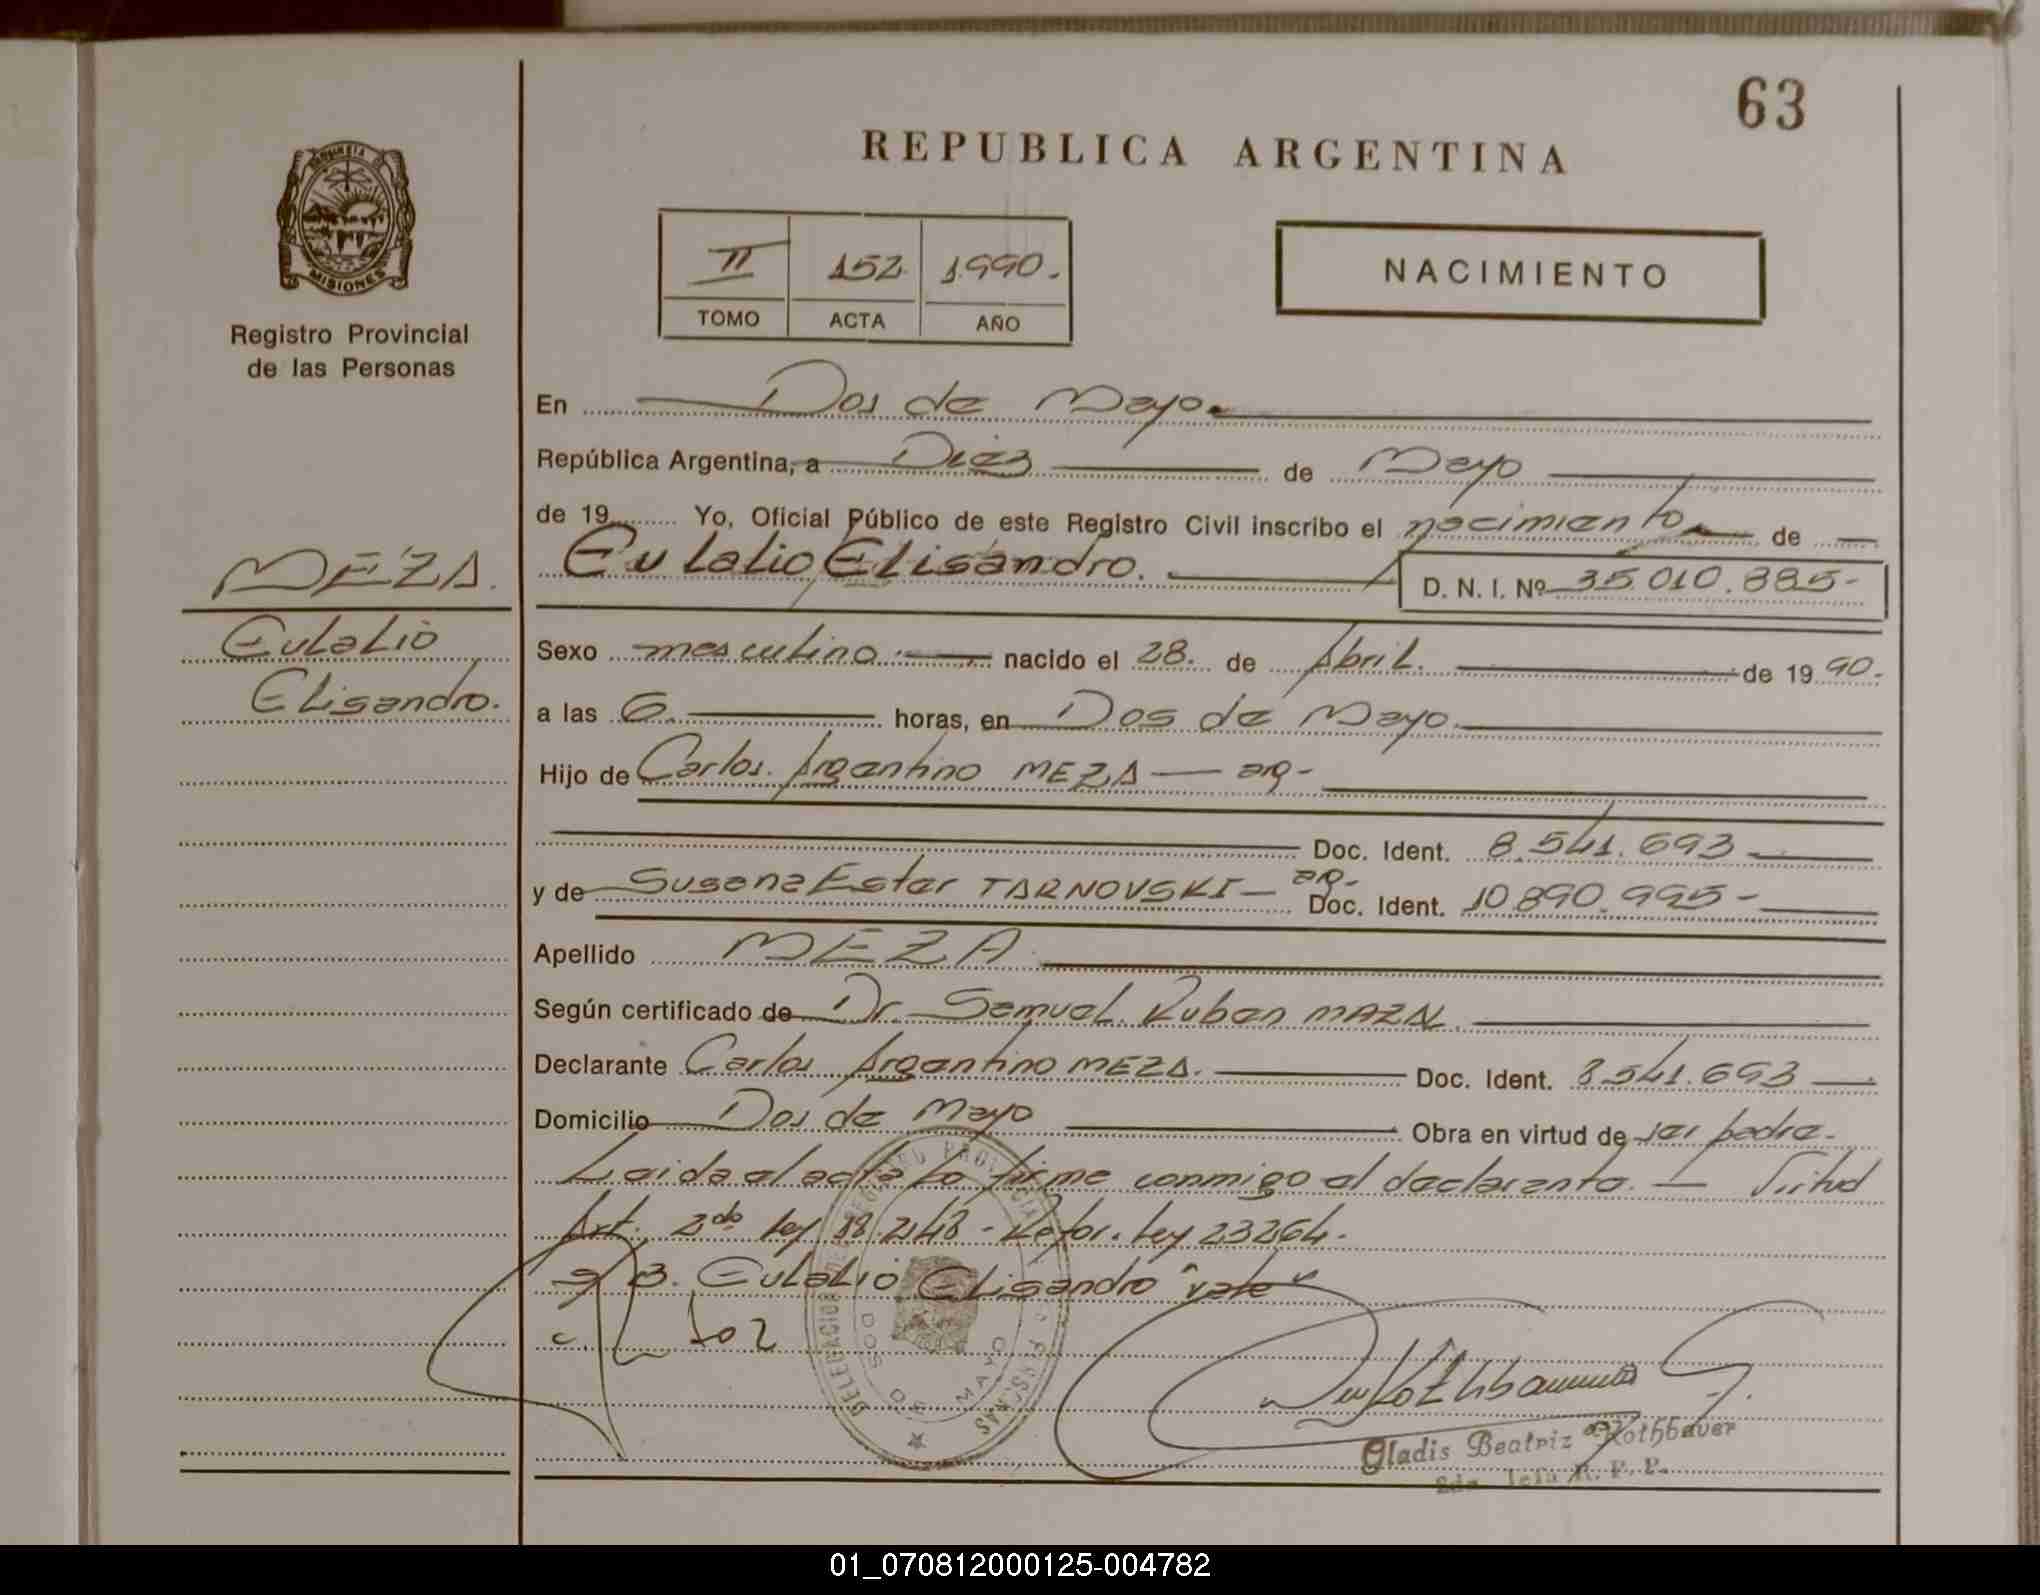 63
REPUBLICA ARGENTINA
PROVINCIA DE
MISIONES
Registro Provincial
de las Personas
II 152 1990.
TOMO ACTA AÑO
NACIMIENTO
En Dos de Mayo.
República Argentina, a Diez de Mayo
de 19 Yo, Oficial Público de este Registro Civil inscribo el nacimiento de
Eulalio Elisandro. D. N. I. Nº 35.010.885-
MEZA.
Eulalio
Elisandro.
Sexo masculino nacido el 28. de Abril. de 19 90.-
a las 6. horas, en Dos de Mayo.
Hijo de Carlos Argentino MEZA - arg-
Doc. Ident. 8.541.693-
y de Susana Ester TARNOVSKI - arg- Doc. Ident. 10.890.995-
Apellido MEZA
Según certificado de Dr. Samuel Ruben MAZAL
Declarante Carlos Argentino MEZA. Doc. Ident. 8.541.693
Domicilio Dos de Mayo Obra en virtud de ser padre.-
Leida el acta la firma conmigo el declarante. - Virtud
Art. 2do ley 18.248 - Refor. Ley 23264.-
S/B. Eulalio Elisandro "vale"
DELEGACION DEL REGISTRO PROVINCIAL DE LAS PERSONAS
DOS DE MAYO
MISIONES
Gladis Beatriz de Rothbauer
R. P. P.
01_070812000125-004782